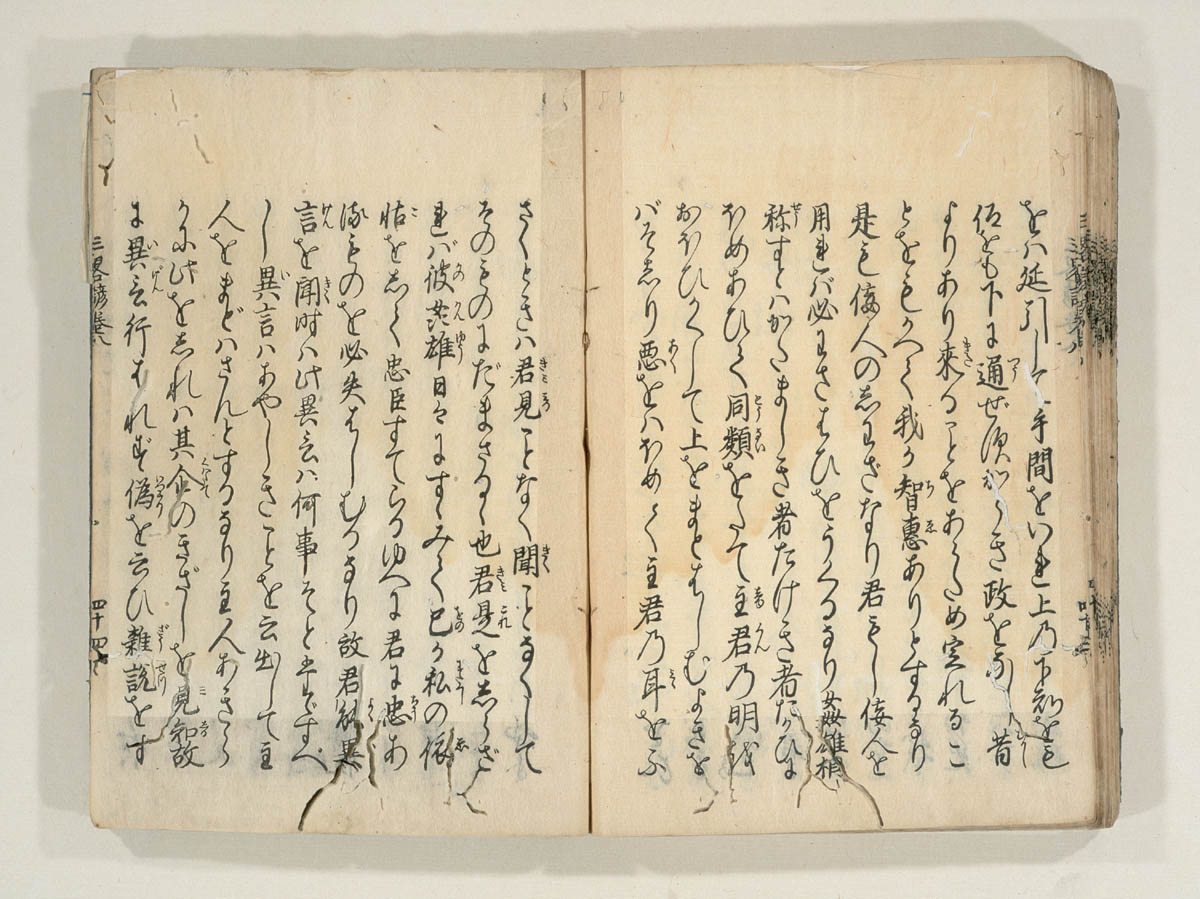 をハ延引して手間をいれ上乃下知をも
住をも下に通ぜず須がき政を昔
よりあり来ることをあらため定れるこ
とをもかへて我が智恵ありとするなり
是も佞人のしわざなり君もし佞人を
用れバ必わざわひをうくるなり姦雄相
称すとハかたましき者たけき者たがひに
ほめあひて同類をたて主君乃明を
おおひかくして上をまどはしむよきを
バそしり悪をハほめて主君乃耳をふ
さくときハ君見ことなく聞ことなくして
そのものにだまさるる也君是をしらざ
れバ彼姦雄日々にすゝみて己が私の依
怙をしるく忠臣すてらるゆへに君に忠あ
るものを必失はしむるなり故君
言を聞時ハ此異言ハ何事そと
し異言ハあやしきことを云出して主
人をまどハさんとするなり主人あきら
かに此をしれハ其企のきざしを見知故
に異言行はれず偽を云ひ雑説をす
三畧諺巻八
四十四